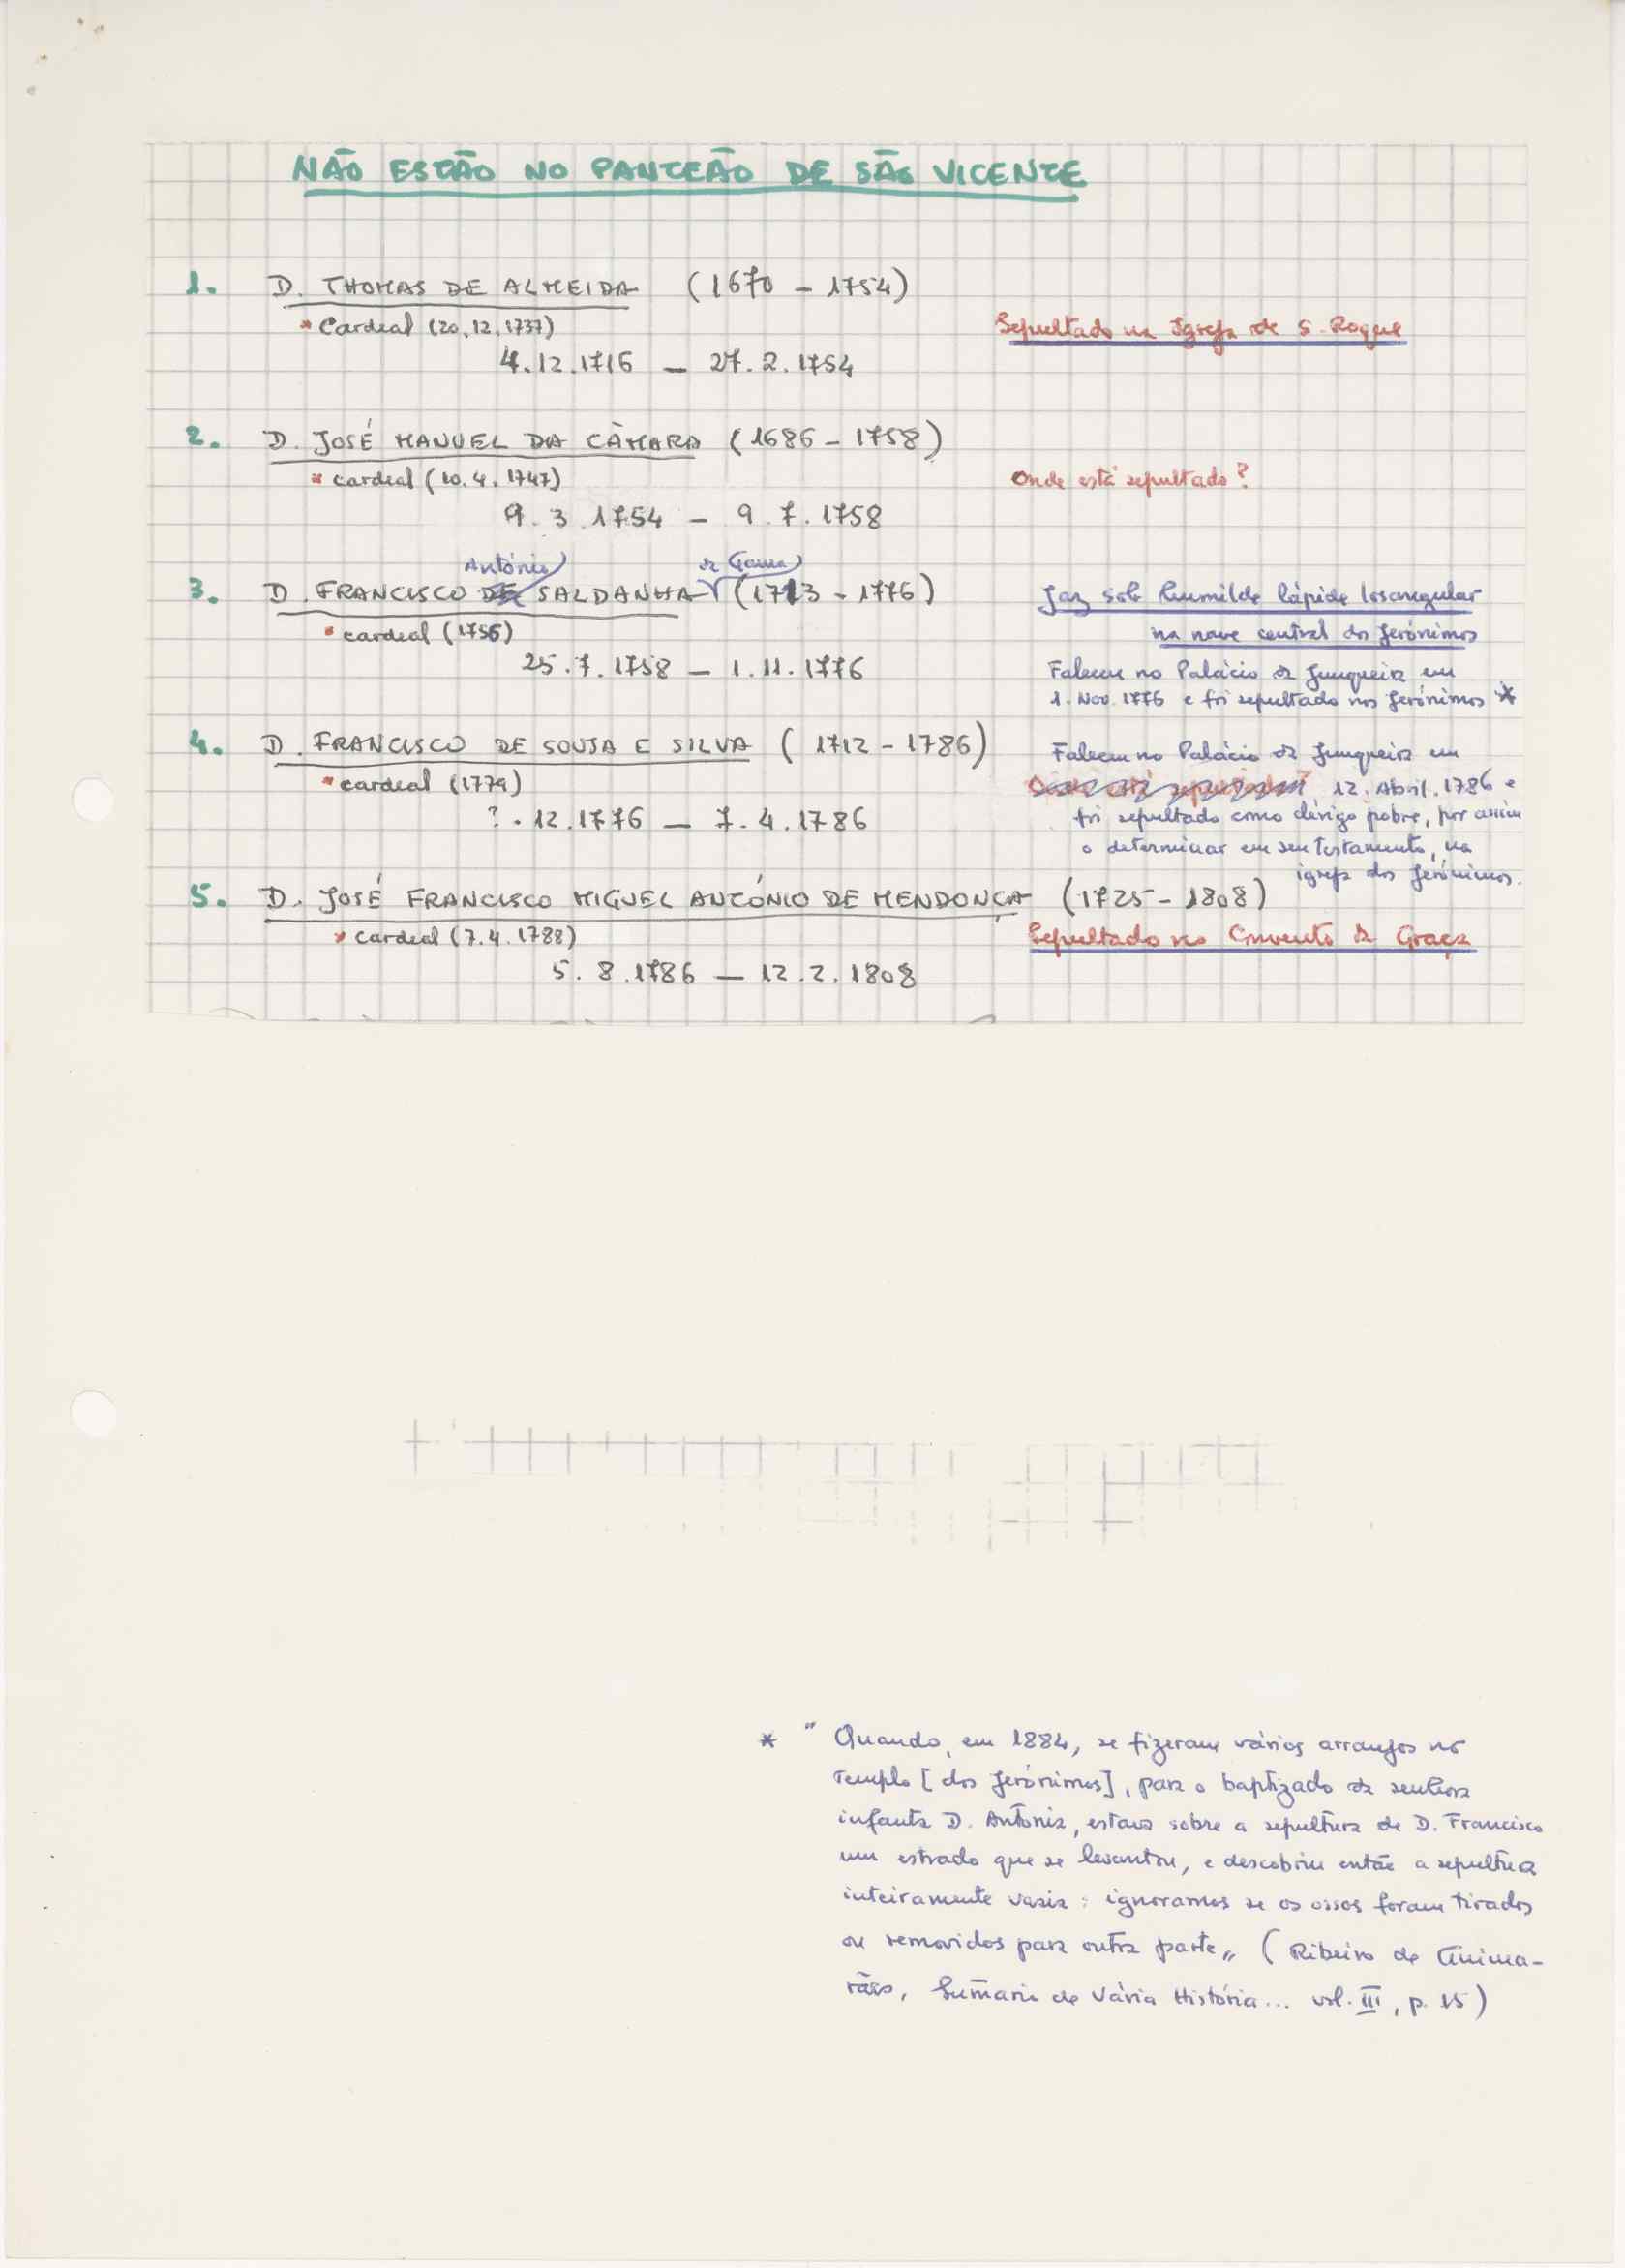 NÃO ESTÃO NO PANTEÃO DE SÃO VICENTE
1. D. THOMAS DE ALMEIDA (1670 - 1754)
* Cardeal (20.12.1737)
Sepultado na Igreja de S. Roque
4.12.1716 — 27.2.1754
2. D. JOSÉ MANUEL DA CÂMARA (1686 - 1758)
* cardeal (10.4.1747)
Onde está sepultado?
9.3.1754 — 9.7.1758
António
da Gama
3. D. FRANCISCO DE SALDANHA (1713 - 1776)
* cardeal (1756)
25.7.1758 — 1.11.1776
Jaz sob humilde lápide losangular
na nave central dos Jerónimos
Faleceu no Palácio da Junqueira em
1. Nov. 1776 e foi sepultado nos Jerónimos *
4. D. FRANCISCO DE SOUSA E SILVA (1712 - 1786)
* cardeal (1779)
?.12.1776 — 7.4.1786
Faleceu no Palácio da Junqueira em
12. Abril. 1786 e
foi sepultado como clérigo pobre, por assim
o determinar em seu testamento, na
igreja dos Jerónimos.
5. D. JOSÉ FRANCISCO MIGUEL ANTÓNIO DE MENDONÇA (1725 - 1808)
* cardeal (7.4.1788)
Sepultado no Convento da Graça
5.8.1786 — 12.2.1808
* " Quando, em 1884, se fizeram vários arranjos no
templo [dos Jerónimos], para o baptizado da senhora
infanta D. Antónia, estava sobre a sepultura de D. Francisco
um estrado que se levantou, e descobriu então a sepultura
inteiramente vazia: ignoramos se os ossos foram tirados
ou removidos para outra parte „ (Ribeiro de Guima-
rães, Sumário de Vária História... vol. III, p. 15)